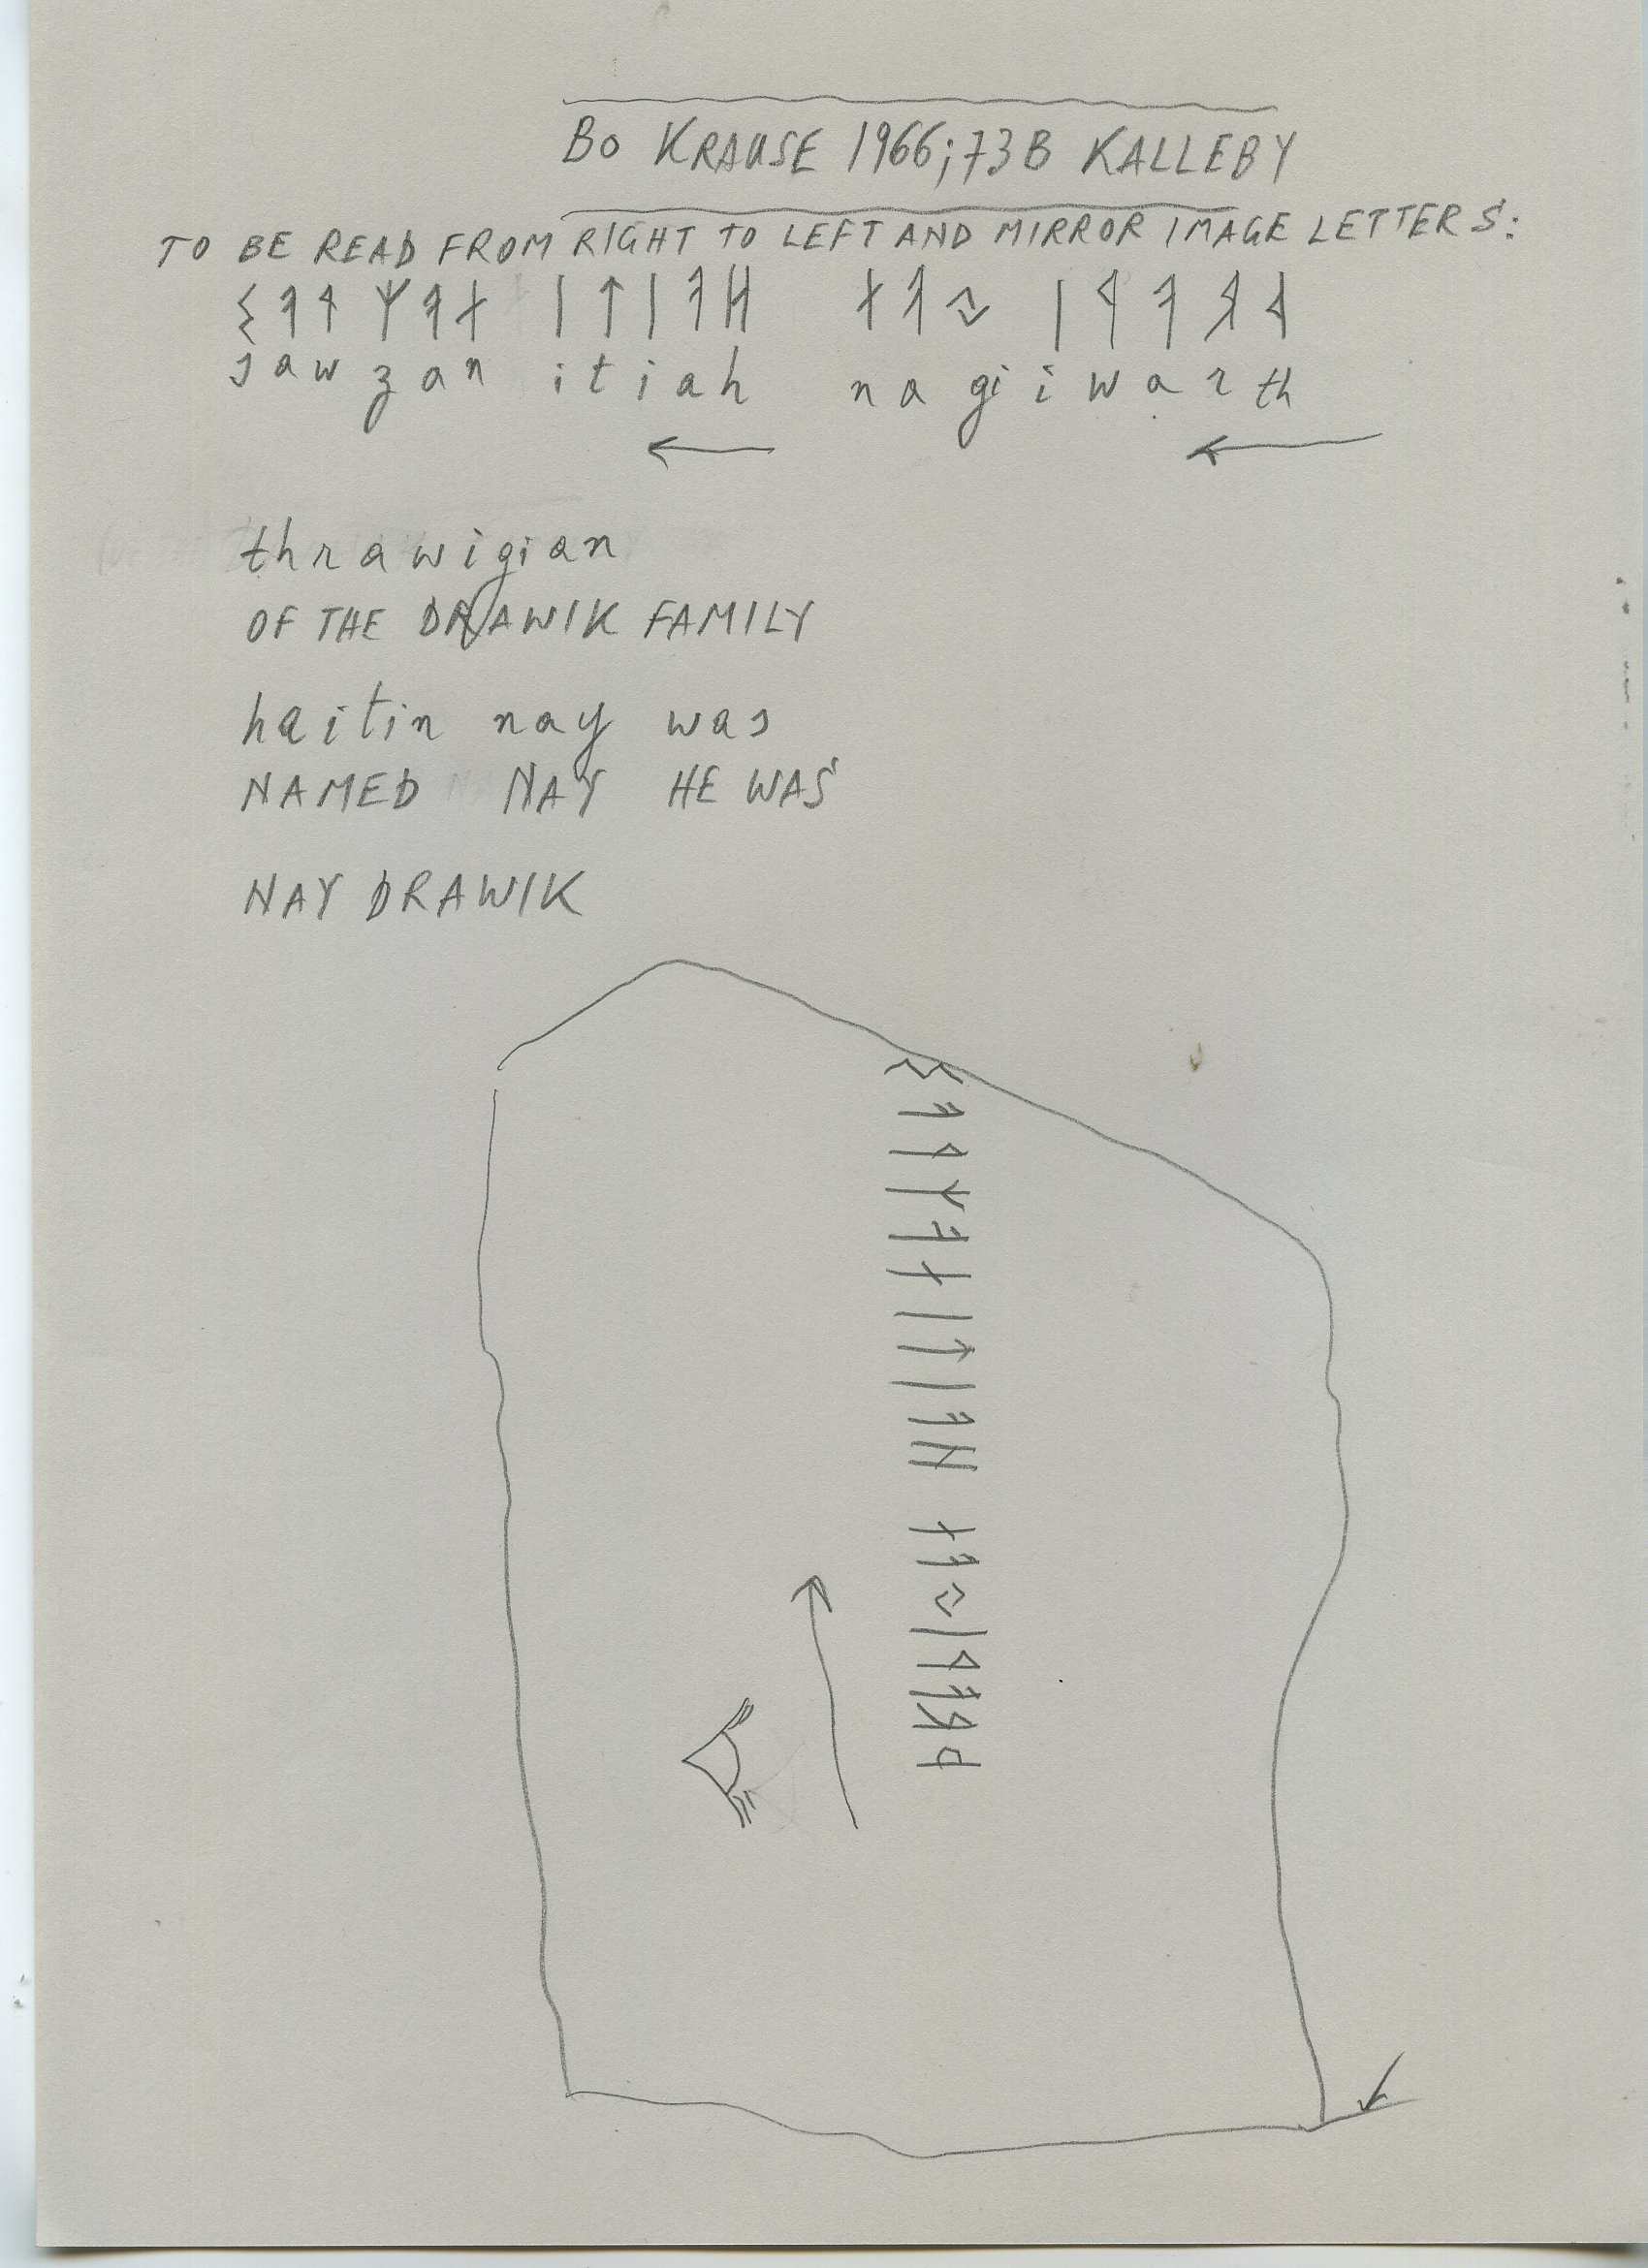 Bo KRAUSE 1966; 73B KALLEBY
TO BE READ FROM RIGHT TO LEFT AND MIRROR IMAGE LETTERS:
ᛊᚨᚹᛉᚨᚾ ᛁᛏᛁᚨᚺ ᚾᚨᛃᛁᚹᚨᚱᚦ
s a w z a n i t i a h n a gi i w a r th
thrawigian
OF THE DRAWIK FAMILY
haitin nay was
NAMED NAY HE WAS
NAY DRAWIK
ᛊ
ᚨ
ᚹ
ᛉ
ᚨ
ᚾ
ᛁ
ᛏ
ᛁ
ᚨ
ᚺ
ᚾ
ᚨ
ᛃ
ᛁ
ᚹ
ᚨ
ᚱ
ᚦ